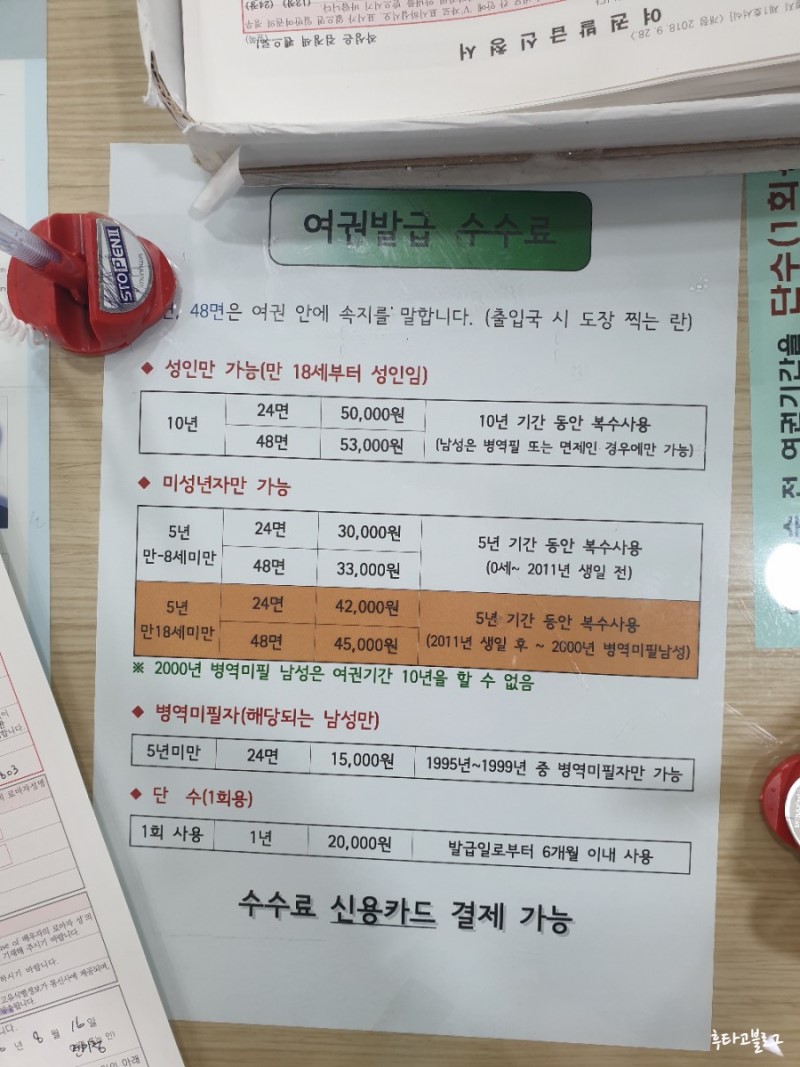 여권발급신청서
작성은 검정색 펜으로
여권발급 수수료
48면은 여권 안에 속지를 말합니다. (출입국 시 도장 찍는 란)
◆ 성인만 가능(만 18세부터 성인임)
10년 24면 50,000원 10년 기간 동안 복수사용
48면 53,000원 (남성은 병역필 또는 면제인 경우에만 가능)
◆ 미성년자만 가능
5년 24면 30,000원 5년 기간 동안 복수사용
만-8세미만 48면 33,000원 (0세~ 2011년 생일 전)
5년 24면 42,000원 5년 기간 동안 복수사용
만18세미만 48면 45,000원 (2011년 생일 후 ~ 2000년 병역미필남성)
※ 2000년 병역미필 남성은 여권기간 10년을 할 수 없음
◆ 병역미필자(해당되는 남성만)
5년미만 24면 15,000원 1995년~1999년 중 병역미필자만 가능
◆ 단 수(1회용)
1회 사용 1년 20,000원 발급일로부터 6개월 이내 사용
수수료 신용카드 결제 가능
STOPEN II
단수(1회
전 여권기간을
기재해 주시기 바랍니다.
하시기 바랍니다.
년 8 월 16일
후타고블로그